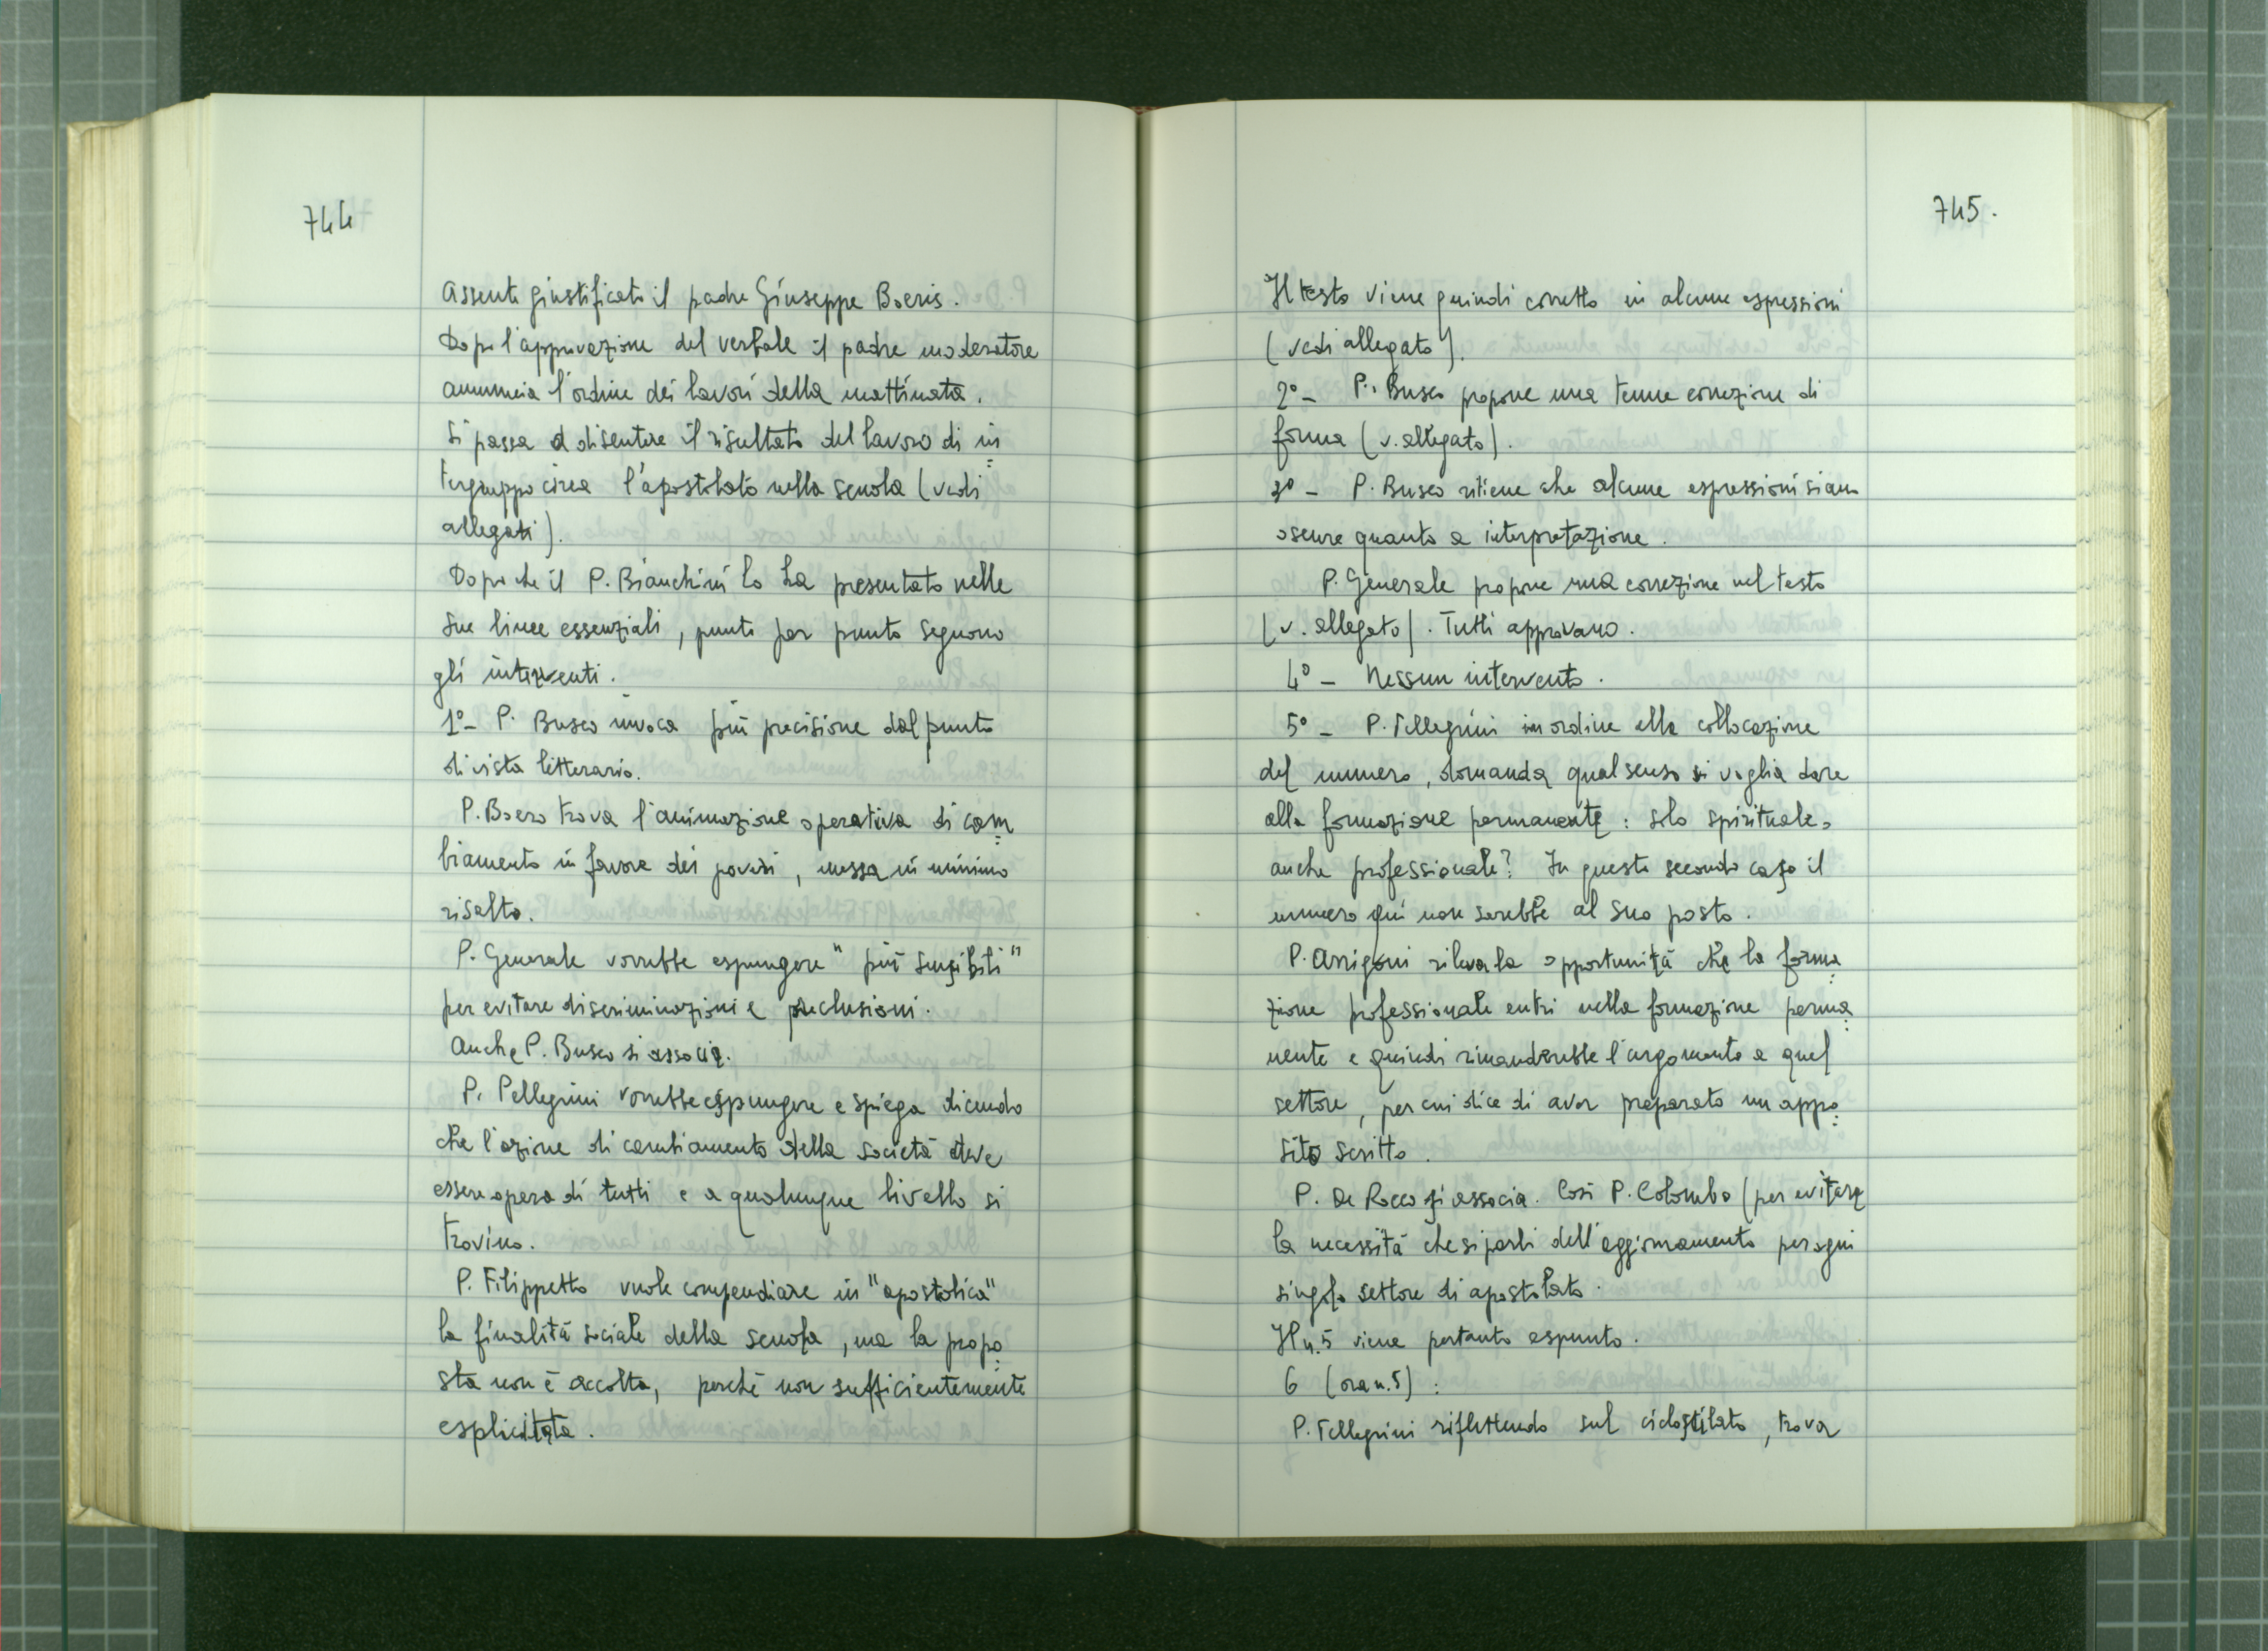 744
Assente giustificato il padre Giuseppe Boeris.
Dopo l'approvazione del verbale il padre moderatore
annuncia l'ordine dei lavori della mattinata.
Si passa a discutere il risultato del lavoro di in=
tergruppo circa l'apostolato nella scuola (vedi
allegati).
Dopo che il P. Bianchini lo ha presentato nelle
sue linee essenziali, punto per punto seguono
gli interventi.
1º- P. Busco invoca più precisione dal punto
di vista letterario.
P. Boero trova l'animazione operativa di cam=
biamento in favore dei poveri, messa in minimo
risalto.
P. Generale vorrebbe espungere "più sensibili"
per evitare discriminazioni e preclusioni.
Anche P. Busco si associa.
P. Pellegrini vorrebbe espungere e spiega dicendo
che l'azione di cambiamento della società deve
essere opera di tutti e a qualunque livello si
trovino.
P. Filippetto vuole compendiare in "apostolica"
la finalità sociale della scuola, ma la propo=
sta non è accolta, perché non sufficientemente
esplicitata.
745.
Il testo viene quindi corretto in alcune espressioni
(vedi allegato).
2º- P. Busco propone una tenue correzione di
forma (v. allegato).
3º - P. Busco ritiene che alcune espressioni siano
oscure quanto a interpretazione.
P. Generale propone una correzione nel testo
(v. allegato). Tutti approvano.
4º - Nessun intervento.
5º - P. Pellegrini in ordine alla collocazione
del numero, domanda qual senso si voglia dare
alla formazione permanente: solo spirituale o
anche professionale? In questo secondo caso il
numero qui non sarebbe al suo posto.
P. Arrigoni rileva la opportunità che la forma=
zione professionale entri nella formazione perma=
nente e quindi rimanderebbe l'argomento a quel
settore, per cui dice di aver preparato un appo=
sito scritto.
P. De Rocco si associa. Così P. Colombo (per evitare
la necessità che si parli dell'aggiornamento per ogni
singolo settore di apostolato.
Il n. 5 viene pertanto espunto.
6 (ora n. 5):
P. Pellegrini riflettendo sul ciclostilato, trova